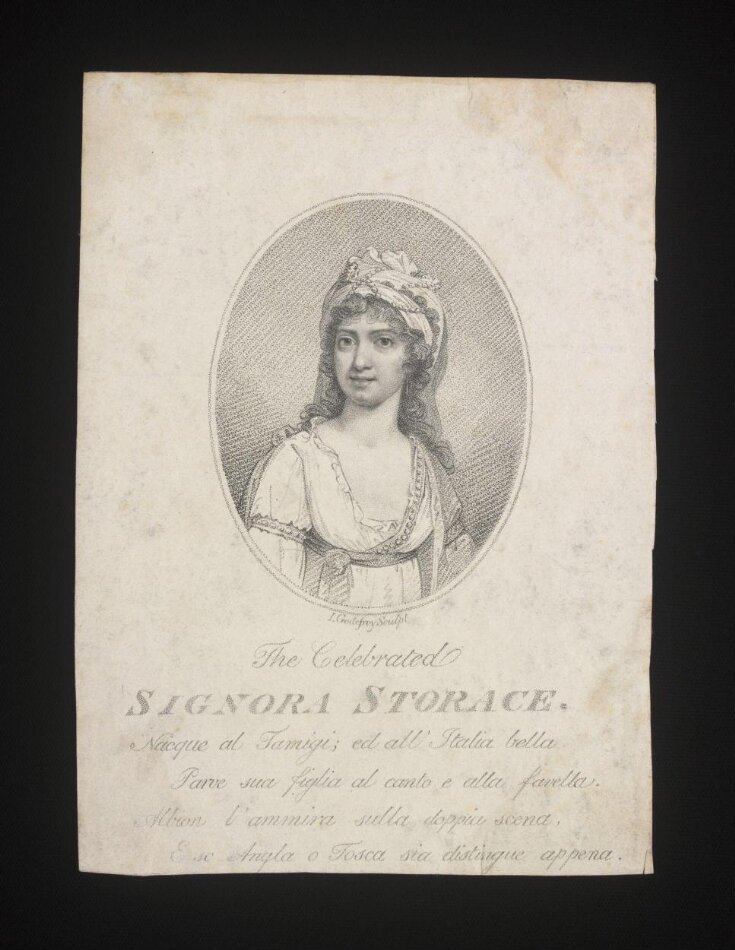 I. Godefroy Sculpt.
The Celebrated
SIGNORA STORACE.
Nacque al Tamigi; ed all' Italia bella
Parve sua figlia al canto e alla favella.
Albion l'ammira sulla doppia scena,
E se Angla o Tosca sia distingue appena.